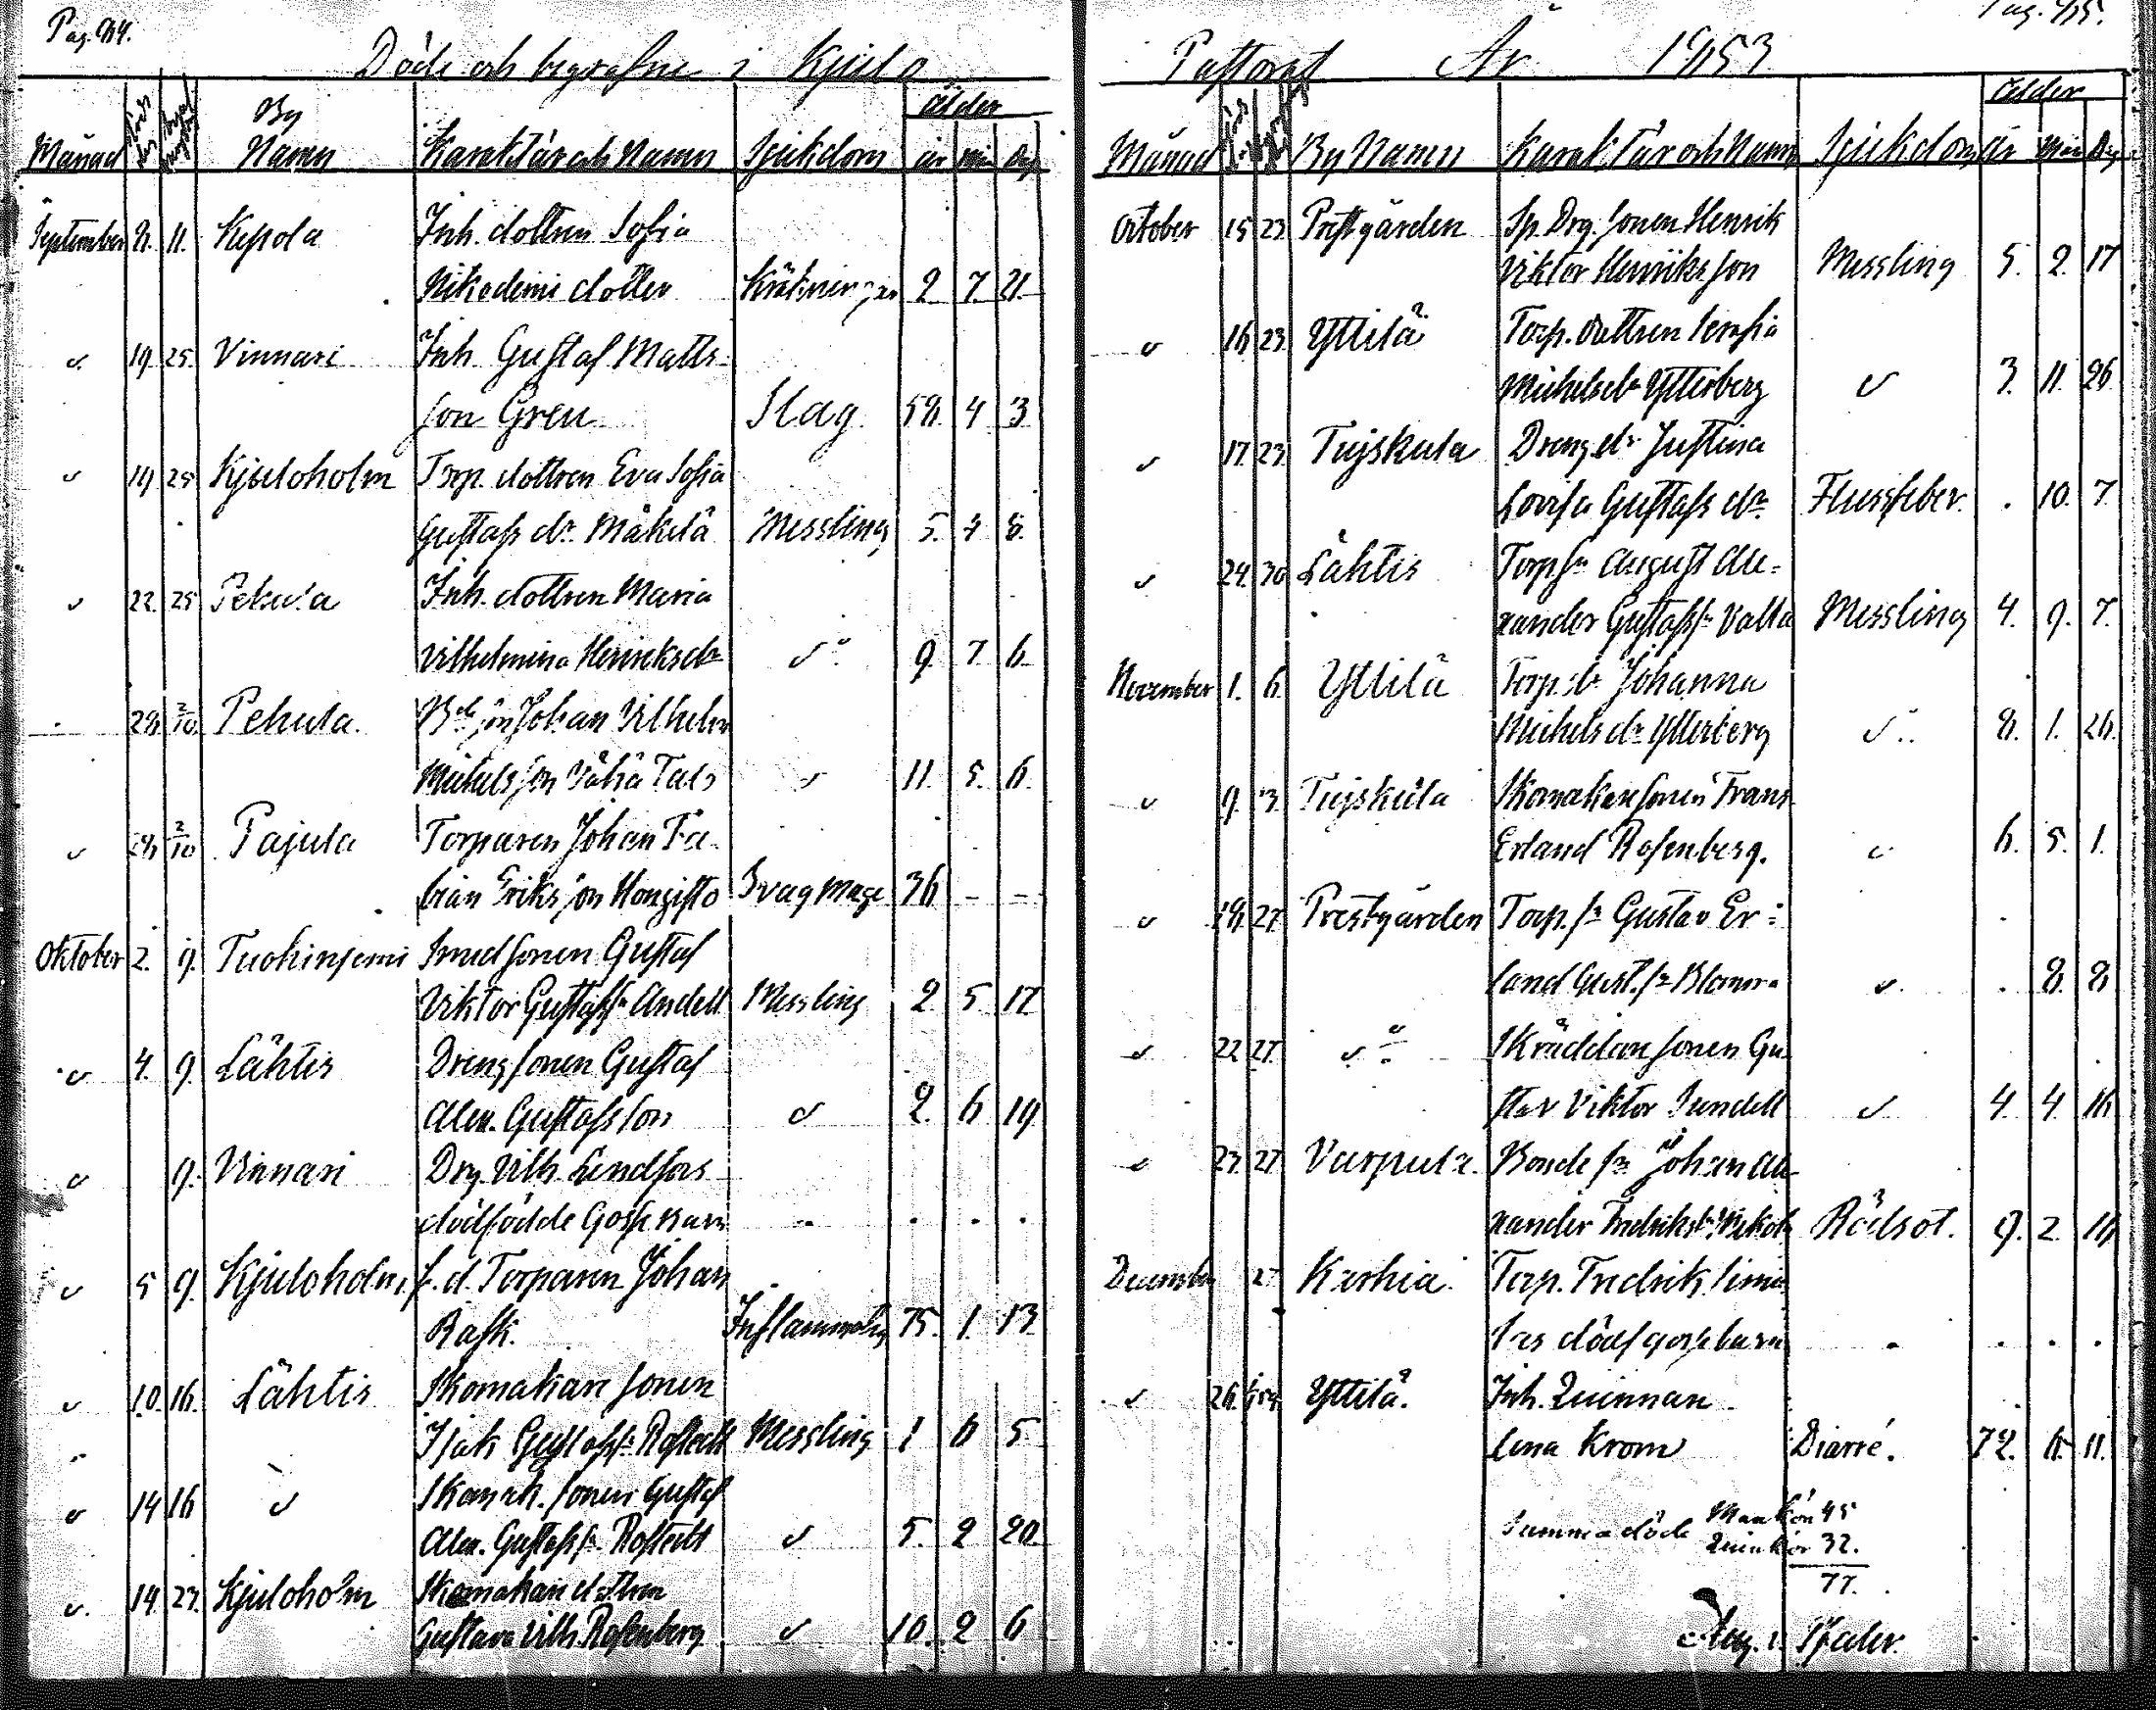 Pag. 84.
Döde och begrafne i Kjulo
Månad By Namn Karaktär och Namn Sjukdom Ålder år mån Dag
September 8. 11. Kepola Inh. dottren Sofia
Nikodemi dotter Kräkningar 2 7 21
" 19 25. Vinnari Inh. Gustaf Matts-
son Gren Slag 58. 4 3
" 19 25 Kjuloholm Torp. dottren Eva Sofia
Gustafs dr. Mäkelä Messling 5. 4 8.
" 22. 25 Pehula Inh. dottren Maria
Vilhelmina Henriksdr " 9 7 6
28 2/10 Pehula Johan Vilhelm
Michelsson Vähä Talo " 11. 5. 6.
" 28 2/10 Pajula Torparen Johan Fa-
bian Eriksson Hongisto Svag Mage 36 - -
Oktober 2. 9. Tuohiniemi Smedsonen Gustaf
Viktor Gustafss. Andell Messling 2 5 17
" 4. 9. Lähtis Drengsonen Gustaf
Alex. Gustafsson " 2. 6 19
" 9. Vinnari Drg. Vilh. Lindfors
dödfödde Gosse barn - . . .
" 5 9. Kjuloholm f. d. Torparen Johan
Rask. Inflammation 75. 1. 13
" 10. 16. Lähtis Skomakare sonen
Isak Gustafss. Rostedt Messling 1 6 5
" 14 16 " Skomak. sonen Gustaf
Alex. Gustafss. Rostedt " 5. 2 20
" 14. 23. Kjuloholm Skomakare dottren
Gustava Vilh. Rosenberg " 10. 2 6
Pag. 85.
Pastorat År 1853
Månad By Namn Karaktär och Namn Sjukdom Ålder år Mån Dag
October 15 23. Prestgården Sp. Drg. sonen Henrik
Viktor Henriksson Messling 5. 2. 17
" 16 23. Yttilä Torp. dottren Serafia
Michelsdr Ytterberg " 3. 11. 26
" 17. 23. Tujskula Dreng dr Justina
Lovisa Gustafs dr. Flussfeber. . 10. 7
" 24. 30 Lähtis Torp sn August Ale=
xander Gustafss. Valta Messling 4. 9. 7.
November 1. 6. Yttilä Torp. dr Johanna
Michels dr. Ytterberg " 8. 1. 26.
" 9. 13. Tujskula Skomakaresonen Frans
Erland Rosenberg. " 6. 5. 1.
" 18. 27. Prestgården Torp. sn Gustav Er=
land Gust. sn Blomra " . 8. 8
" 22. 27. " Skräddare sonen Gu
stav Viktor Sundell " 4. 4. 16
" 23. 27. Varpula. Bonde sn Johan Ale
xander Fredrikss. Rödsot. 9. 2. 18
December 27 Karhia. Torp. Fredrik Simo
las dödf. gosse barn . . . .
" 26. Yttilä. Inh. Quinnan
Lena Krom Diarré. 72. 6. 11.
Summa döde Mankön 45
Quinkön 32.
77.